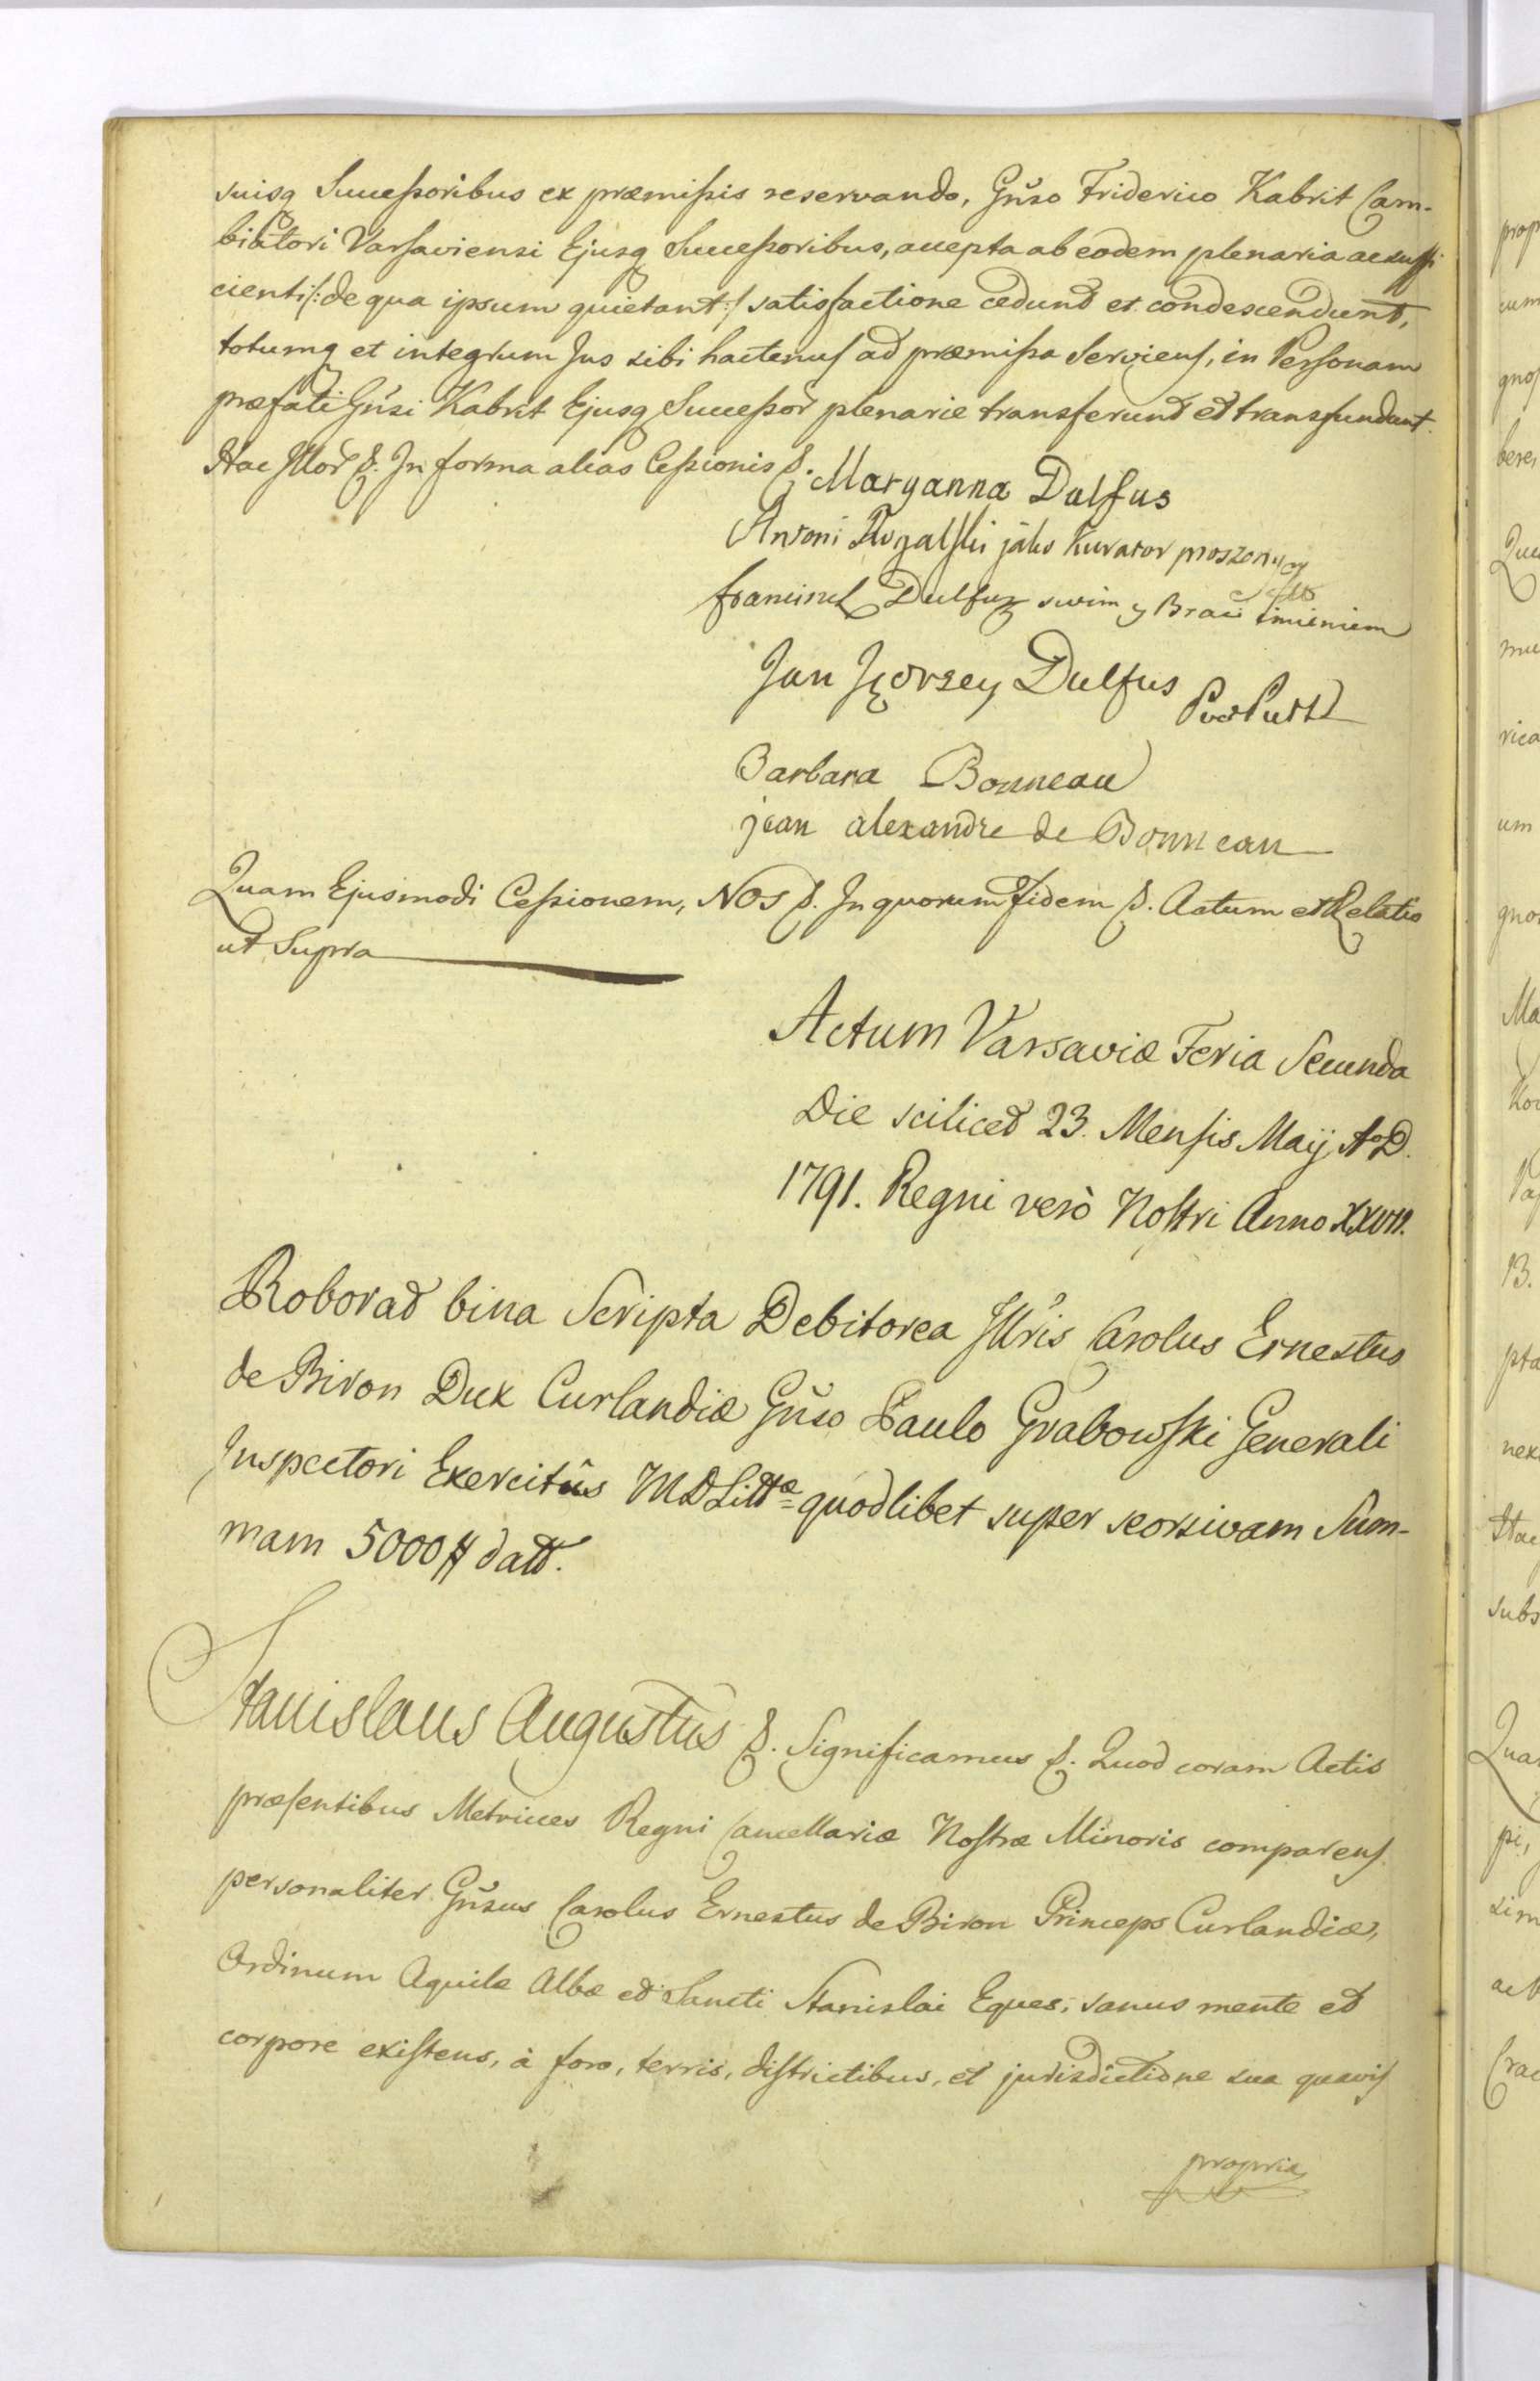 suisq Successoribus ex præmissis reservando, Gñso Friderico Kabrit Cam-
biatori Varsaviensi Ejusq Successoribus, accepta ab eodem plenaria ac suffi
cienti /: de qua ipsum quietant :/ satisfactione cedunt et condescendunt,
totumq et integrum Jus sibi hactenus ad præmissa Serviens, in Personam
præfati Gñsi Kabrit Ejusq Successor plenarie transferunt et transfundunt.
Hac Mor &. In forma alias Cessionis &. Maryanna Dulfus
Antoni Rogalski jáko Kurator proszony
Francisek Dulfus swim y Braci imieniem
Jan Jęorzey Dulfus
Barbara Bonneau
jean alexandre de Bonneau
Quam Ejusmodi Cessionem, Nos &. In quorum Fidem &. Actum et Relatio
ut Supra
Actum Varsaviæ Feria Secunda
Die scilicet 23. Mensis Maij AoD.
1791. Regni verò Nostri Anno XXVII.
Roborat bina Scripta Debitorea Illris Carolus Ernestus
de Biron Dux Curlandiæ Gñso Paulo Grabowski Generali
Inspectori Exercitûs MDLittæ quodlibet super seorsivam Sum-
mam 5000 # datt.
Stanislaus Augustus &. Significamus &. Quod coram Actis
præsentibus Metrices Regni Cancellariæ Nostræ Minoris comparens
personaliter Gñsus Carolus Ernestus de Biron Princeps Curlandiæ,
Ordinum Aquilæ Albæ et Sancti Stanislai Eques, sanus mente et
corpore existens, à foro, terris, districtibus, et jurisdictione sua quavis
propria